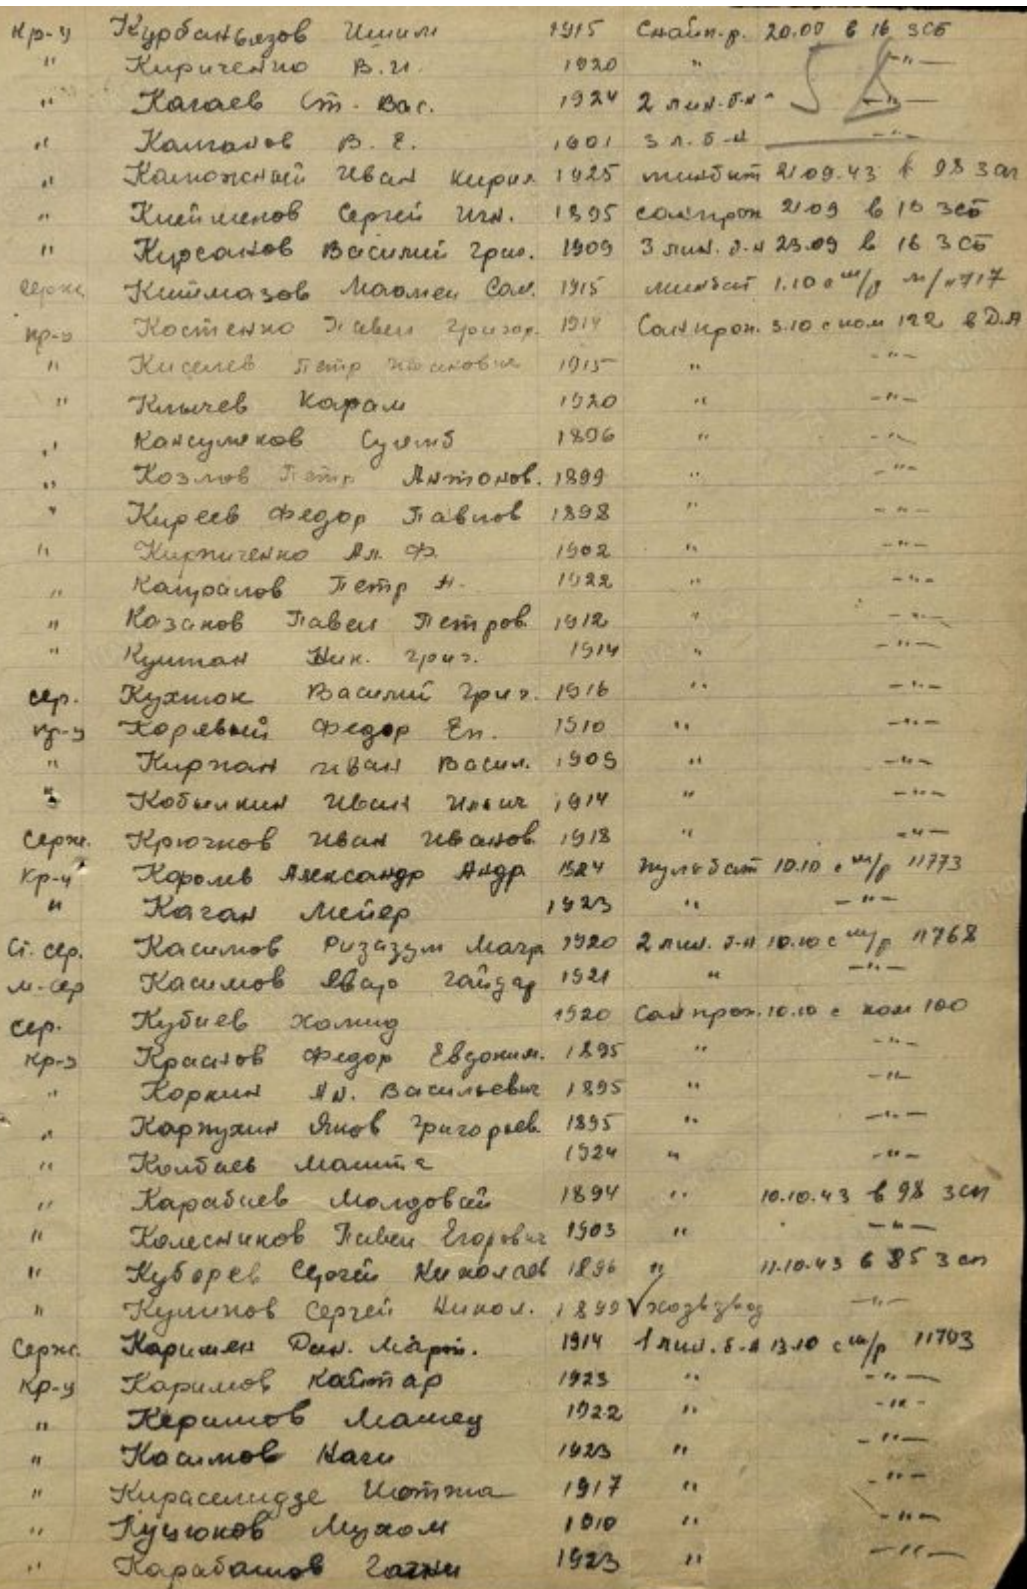 кр-ц Курбаньязов Ишим 1915 Снайп.р. 20.09 в 16 ЗСБ
" Кириченко В.И. 1920 " -"-
" Кагаев Ст. Вас. 1924 2 лин. б-н -"-
" Калганов В. Е. 1901 3 л. б-н -"-
" Каможный Иван Кирил 1925 минбат 21.09.43 в 98 зсп
" Сергей Игн. 1895 санпрох 21.09 в 16 зсб
" Курсаков Василий Григ. 1909 3 лин. б-н 23.09 в 16 ЗСБ
серж. 1915 минбат 1.10 с м/р 717
кр-ц Костенко Павел Григор. 1914 Санпрох. 3.10 с ком 122 в Д.А
" Киселев Петр Иванович 1915 " -"-
" Клычев Карам 1920 " -"-
" 1896 " -"-
" Козлов Петр Антонов. 1899 " -"-
" Киреев Федор Павлов 1898 " -"-
" Кирпиченко Ал. Ф. 1902 " -"-
" Петр Н. 1922 " -"-
" Казаков Павел Петров. 1912 " -"-
" Ник. Григ. 1914 " -"-
сер. Кухтюк Василий Григ. 1916 " -"-
кр-ц Корявый Федор Еп. 1910 " -"-
" Кирпан Иван Васил. 1909 " -"-
" Кобылкин Иван Ильич 1914 " -"-
Серж. Крючков Иван Иванов. 1918 " -"-
Кр-ц Королев Александр Андр 1924 пульбат 10.10 с м/р 11773
" Каган Мейер 1923 " -"-
Ст. сер. Касимов 1920 2 лин. б-н 10.10 с м/р 11768
м-сер Касимов Гайдар 1921 " -"-
сер. Кубиев Хамид 1920 Санпрох. 10.10 с ком 100
кр-ц Краснов Федор Евдоким. 1895 " -"-
" Коркин Ан. Васильевич 1895 " -"-
" Карпухин Яков Григорьев. 1895 " -"-
" Колбаев 1924 " -"-
" Карабаев Молдовай 1894 " 10.10.43 в 98 зсп
" Колесников Павел Егорович 1903 " -"-
" Куборев Сергей Николаев 1896 " 11.10.43 в 85 зсп
" Куликов Сергей Никол. 1899 √ хозвзвод -"-
Серж. Каримен Дан. Март. 1914 1 лин. б-н 13.10 с м/р 11703
кр-ц Каримов Каймар 1923 " -"-
" Керимов Мамед 1922 " -"-
" Касимов Наги 1923 " -"-
" 1917 " -"-
" Мухам 1910 " -"-
" Карабашов 1923 " -"-